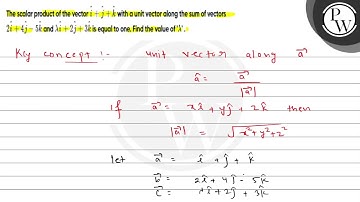 The scalar product of the vector î + ĵ + k̂ with a unit vector along the sum of vectors
2î + 4ĵ − 5k̂ and λî + 2ĵ + 3k̂ is equal to one. Find the value of 'λ'.
PW
Key concept :- unit vector along a⃗
â = a⃗ / |a⃗|
if a⃗ = xî + yĵ + zk̂ then
|a⃗| = √x²+y²+z²
let a⃗ = î + ĵ + k̂
b⃗ = 2î + 4ĵ - 5k̂
c⃗ = λî + 2ĵ + 3k̂